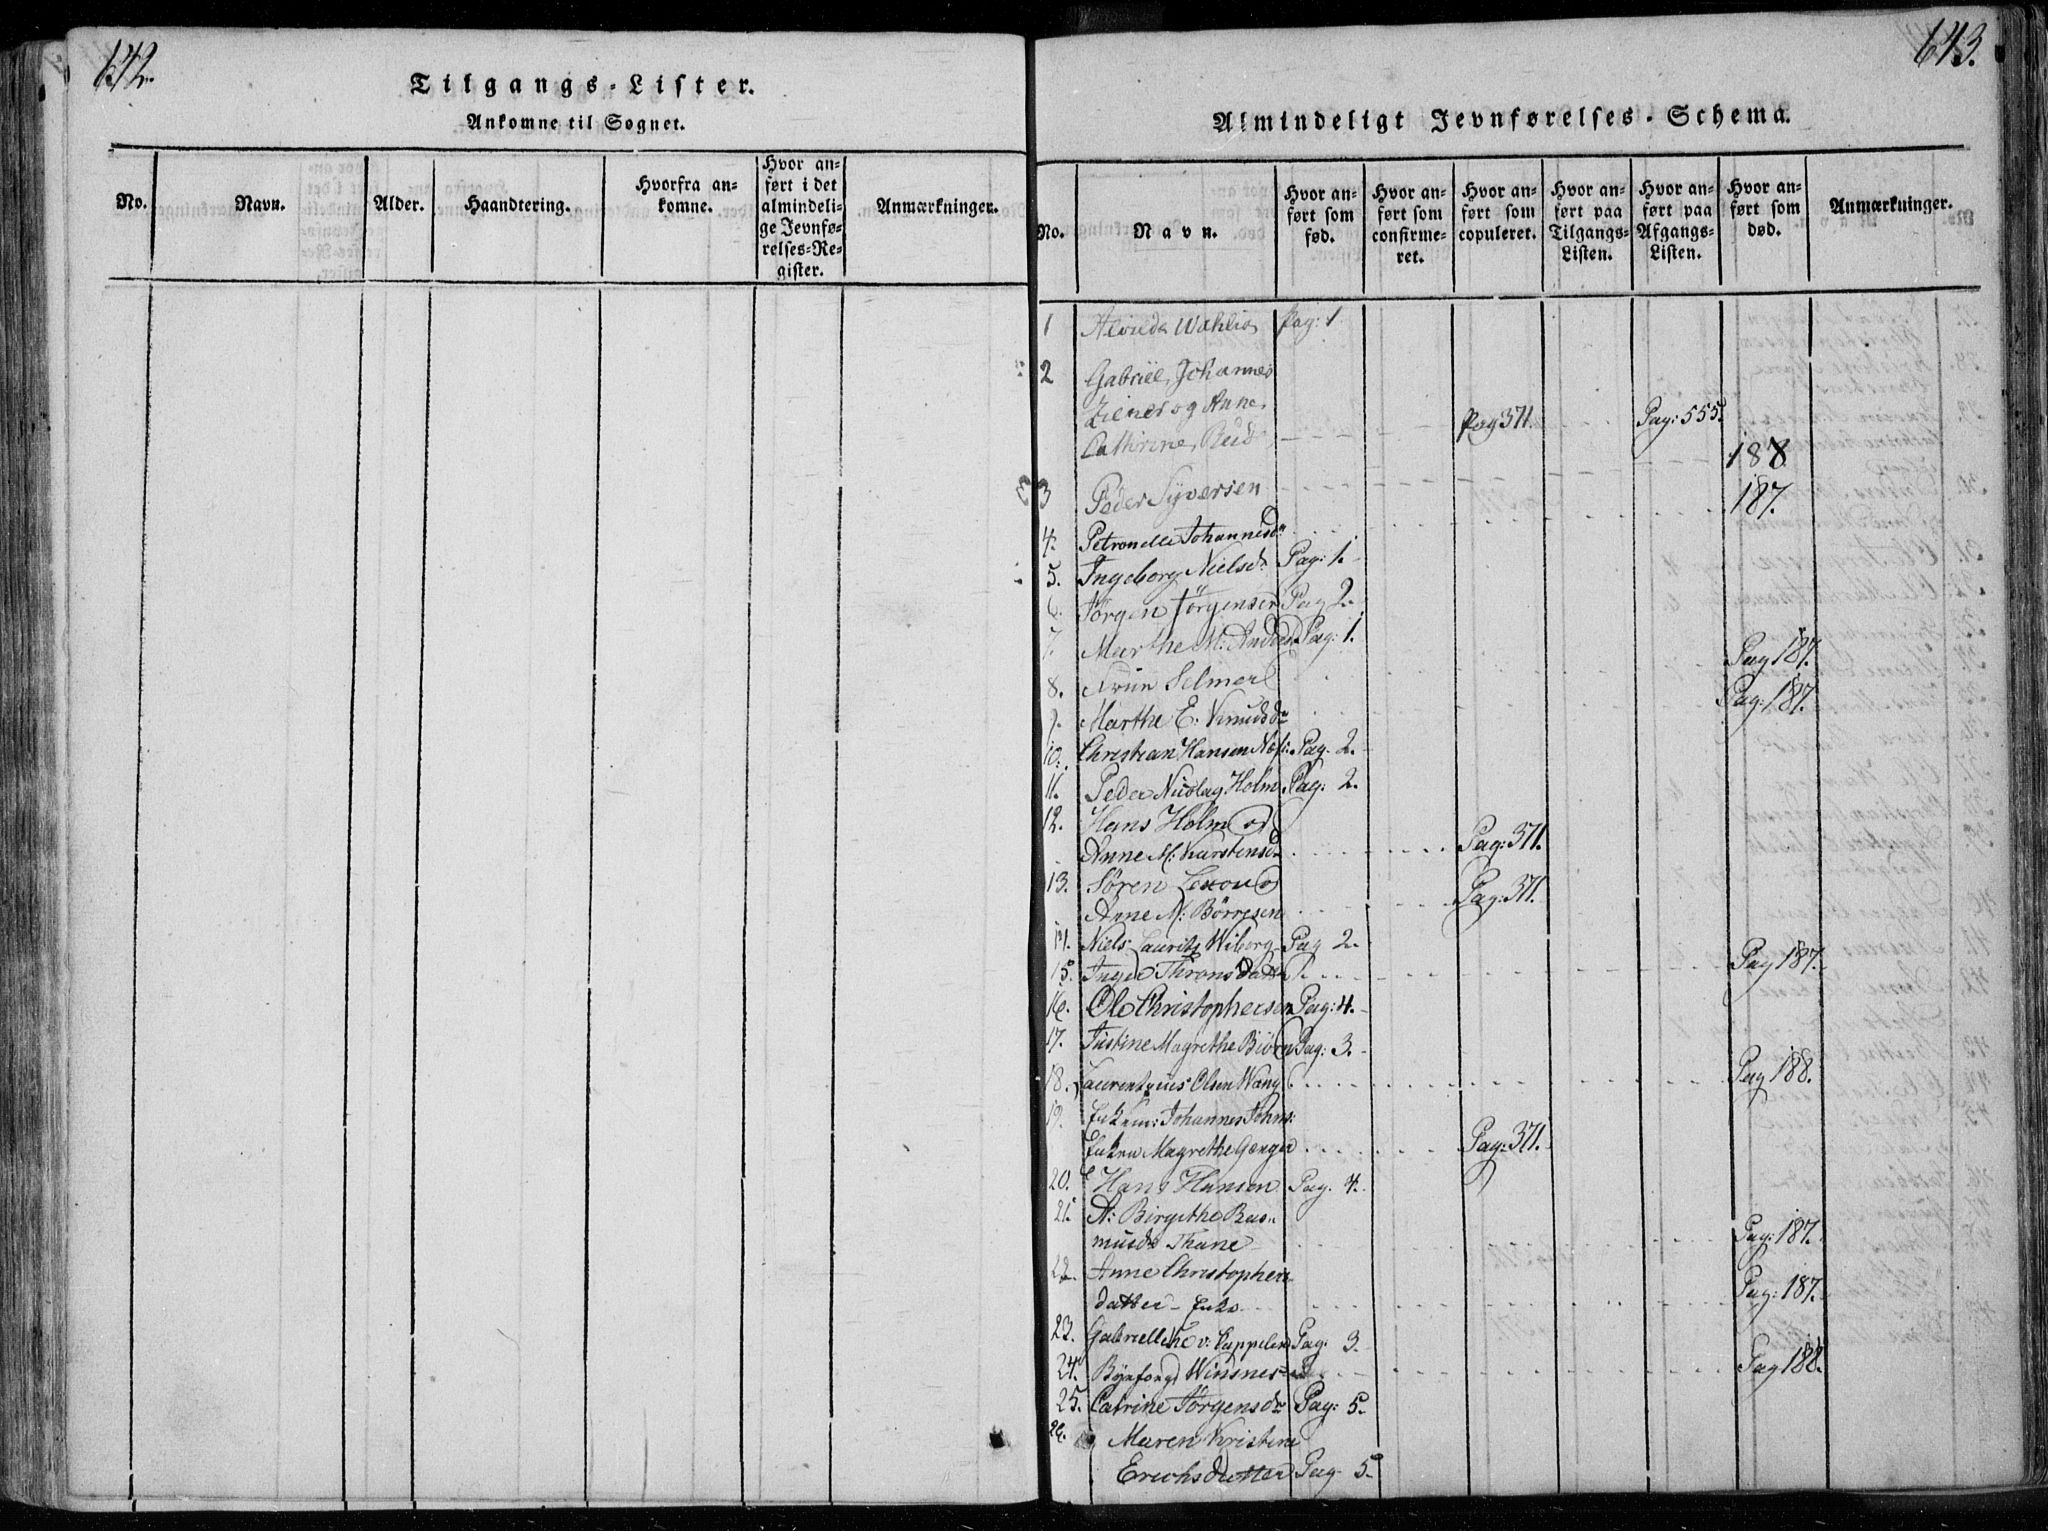 642.
Tilgangs-Lister.
Ankomne til Sognet.
No. Navn. Alder. Haandtering. Hvorfra ankomne. Hvor anført i det almindelige Jevnførelses-Register. Anmærkninger.
643.
Almindeligt Jevnførelses-Schema.
No. Navn. Hvor anført som fød. Hvor anført som confirmeret. Hvor anført som copuleret. Hvor anført paa Tilgangs-Listen. Hvor anført paa Afgangs-Listen. Hvor anført som død. Anmærkninger.
1 Pag: 1
2 Gabriel Johannes
Ziener og Anne
Cathrine Pag 371. Pag: 555.
188
3 Peder Syversen
187.
4. Petronelle Johannesd
5. Ingeborg Nielsd Pag: 1.
6. Jörgen Jörgensen Pag 2.
7. Marthe M: Pag: 1.
Pag 187.
8. Selmer
Pag: 187.
9. Marthe E. Knudsd
10. Christian Hansen Pag. 2.
11. Peder Nicolay Holm Pag: 2.
12. Hans Holm og
Anne M: Karstensd Pag: 371.
13. Sören
Pag: 371.
Anne M: Börresen
14. Niels Lauritz Wiborg Pag 2.
15. Inger Pag 187.
16. Ole Christophersen Pag: 4.
17. Justine Magrethe Pag: 3.
18. Olsen Wang Pag 188.
19. Enkem: Johannes Johns:
Enken Magrethe Pag: 371.
20. Hans Hansen Pag. 4.
21. A: Birgithe Ras-
musd Thane Pag: 187.
22. Anne Christophers
datter Enke Pag: 187.
23. v: Cappelen Pag: 3.
24. Winsnes Pag 188.
25. Catrine Jörgensd Pag: 5.
26. Maren Kristine
Erichsdatter Pag. 5.